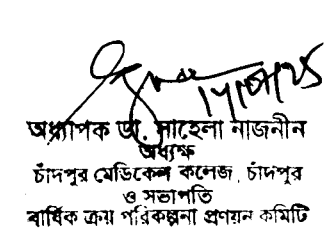 অধ্যাপক ডা. সাহেলা নাজনীন
অধ্যক্ষ
চাঁদপুর মেডিকেল কলেজ, চাঁদপুর
ও সভাপতি
বার্ষিক ক্রয় পরিকল্পনা প্রণয়ন কমিটি